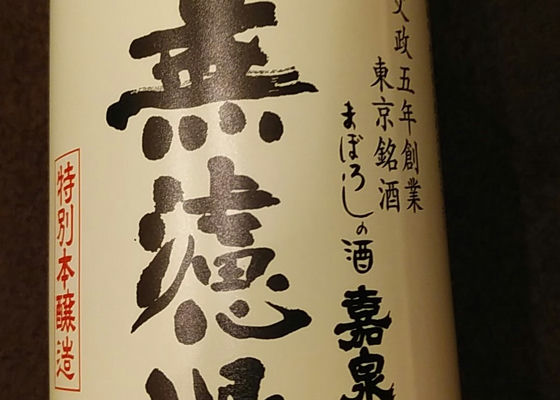 文政五年創業
東京銘酒
まぼろしの酒
嘉泉
無濾過
特別本醸造